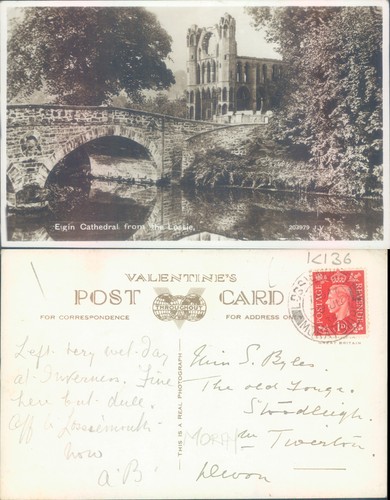 Elgin Cathedral from the Lossie.
203979 J.V.
K136
VALENTINE'S
POST CARD
FOR CORRESPONDENCE
FOR ADDRESS ON
POSTAGE
REVENUE
1D
GREAT BRITAIN
THIS IS A REAL PHOTOGRAPH
Left very wet day
at Inverness. Fine
here but dull.
Off to Lossiemouth
now
A.B.
Miss S. Byles.
The old
Stoodleigh
Nr Tiverton
Devon
MORAY